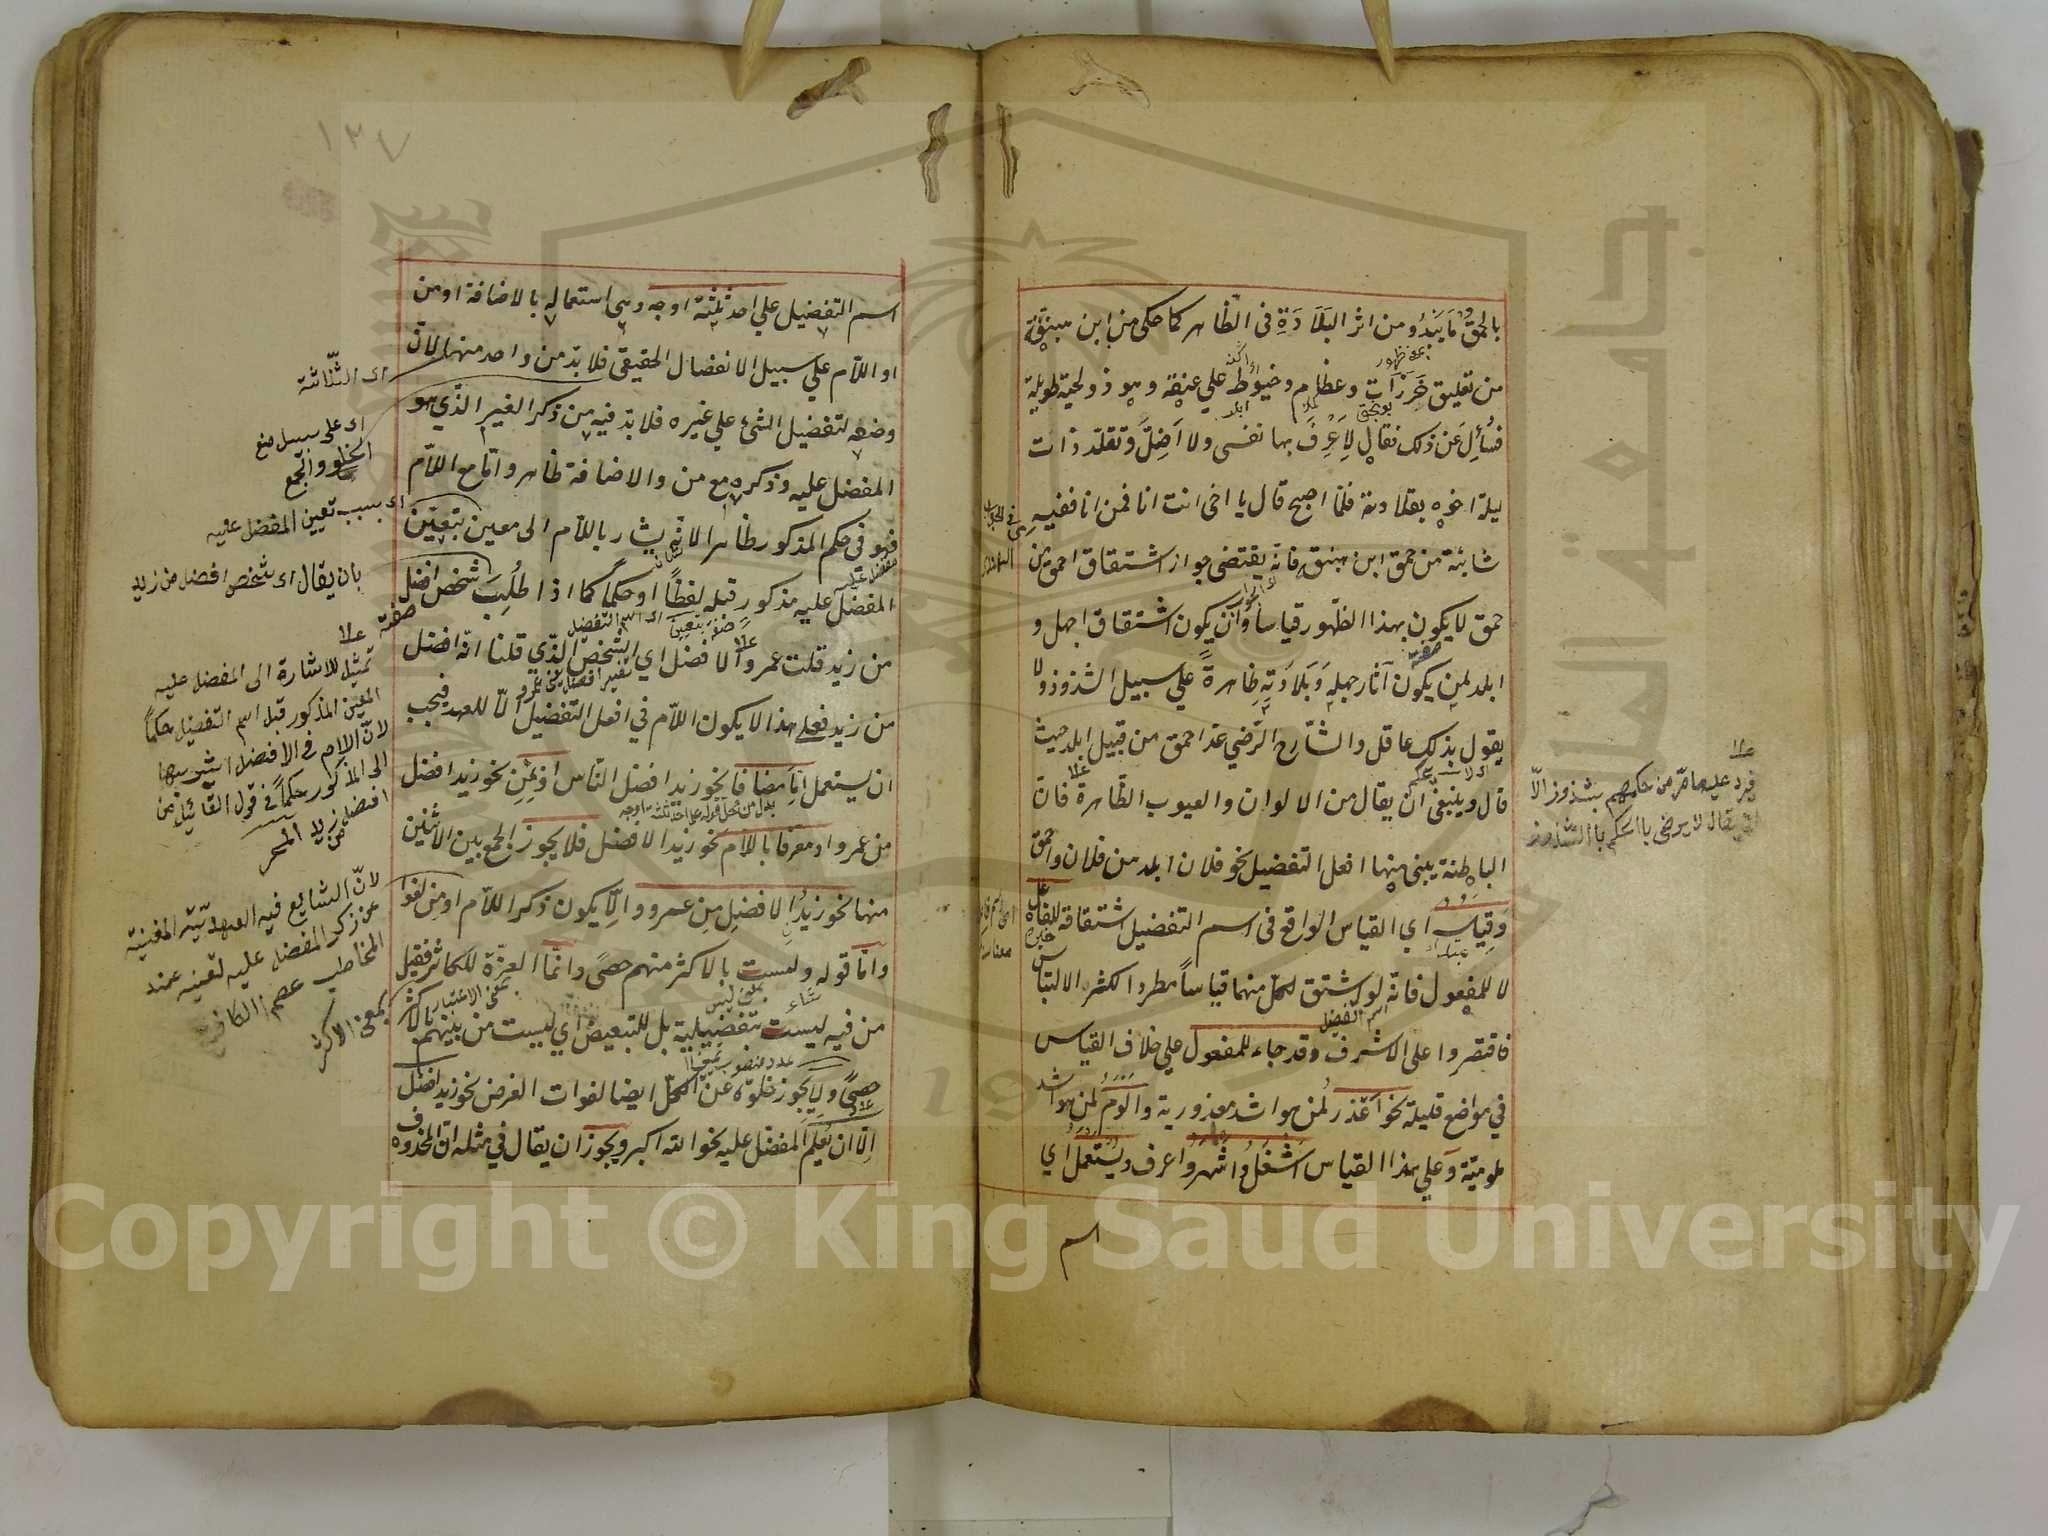 بالحمق ما يبدو من اثر البَلَادَةِ فى الظاهر كما حكى من ابن هبنقة
من تعليق خَرَزَاتٍ وعظام وخيوط علي عنقه وهو ذو لحية طويلة
فسُئِلَ عن ذلك فقال لِأَعْرِفَ بها نفسى ولا اَضِلَّ وتقلّد ذات
ليلة اخوه بقلادته فلمّا اصبح قال يا اخى انت انا فمن انا ففيه
شائبة من حمق ابن هبنقة فانّه يقتضى جواز اشتقاق احمق من
حمق لا يكون بهذا الظّهور قياساً وأن يكون اشتقاق اجهل و
ابلد لمن يكون آثار جهله وَبَلَادَتِهِ ظاهرةً علي سبيل الشذوذ ولا
يقول بذلك عاقل والشّارح الرّضي عدّ احمق من قبيل ابلد حيث
قال وينبغى ان يقال من الالوان والعيوب الظّاهرة فان
الباطنة يبنى منها افعل التفضيل نحو فلان ابلد من فلان واحمق
وَقِيَاسُهُ اي القياس الواقع فى اسم التفضيل اشتقاقه للفاعل
لا للمفعول فانّه لو اشتق لكلّ منهما قياساً مطردا لكثر الالتباس
فاقتصروا على الاشرف وقد جاء للمفعول علي خلاف القياس
في مواضع قليلة نحو اَعْذَر لمن هو اشد معذورية واَلْوَمُ لمن هو اشد
ملومية وَعلي هذا القياس اَشْغَلُ وَاَشْهَرُ واعرف ويُستعمل اي
اسم
فيرد عليه ما مرّ من حكمهم بشذوذ الّا
ان يقال لا يرضى بالحكم بالشذوذ
١٣٧
اسم التفضيل علي احد ثلثة اوجه وهى استعماله بالاضافة او من
او اللّام علي سبيل الانفصال الحقيقى فلا بدّ من واحد منها لانّ
وضعه لتفضيل الشئ علي غيره فلا بدّ فيه من ذكر الغير الذّي هو
المفضل عليه وذكره مع من والاضافة ظاهر وامّا مع اللّام
فهو فى حكم المذكور ظاهرا لانّه يشار باللّام الى معين بتعيّن
المفضل عليه مذكور قبله لفظاً او حكماً كما اذا طُلِبَ شخص افضل
من زيد قلت عمرو الافضل اي الشخص الذّي قلنا انّه افضل
من زيد فعلي هذا لا يكون اللّام في افعل التفضيل الّا للعهد فيجب
ان يستعمل اِمّا مضافا نحو زيد افضل النّاس او بمِن نحو زيد افضل
من عمرو او معرفا باللام نحو زيد الافضل فلا يجوز الجمع بين الاثنين
منها نحو زيدُ الافضل مِن عمرو والّا يكون ذكر اللّام او من لغوا
وامّا قوله ولست بالاكثر منهم حصىً وانّما العزّة للكاثر فقيل
من فيه ليست تفضيلية بل للتبعيض اي لست من بينهم بالاكثر
حصىً ولا يجوز خلوّه عن الكلّ ايضا لفوات الغرض نحو زيد افضل
الّا ان يُعلم المفضل عليه نحو الله اكبر ويجوز ان يقال في مثله انّ المحذوف
اى الثّلاثة
اى على سبيل منع
الخلو والجمع
اى بسبب تعين المفضل عليه
بان يقال اى شخص افضل من زيد
تمثيل للاشارة الى المفضل عليه
المعين المذكور قبل اسم التفضيل حكماً
لانّ اللام فى الافضل اشير بها
الى المذكور حكماً فى قول القائل من
افضل من زيد
لانّ الشايع فيه العهديّة المغنية
عن ذكر المفضل عليه لتعينه عند
المخاطب